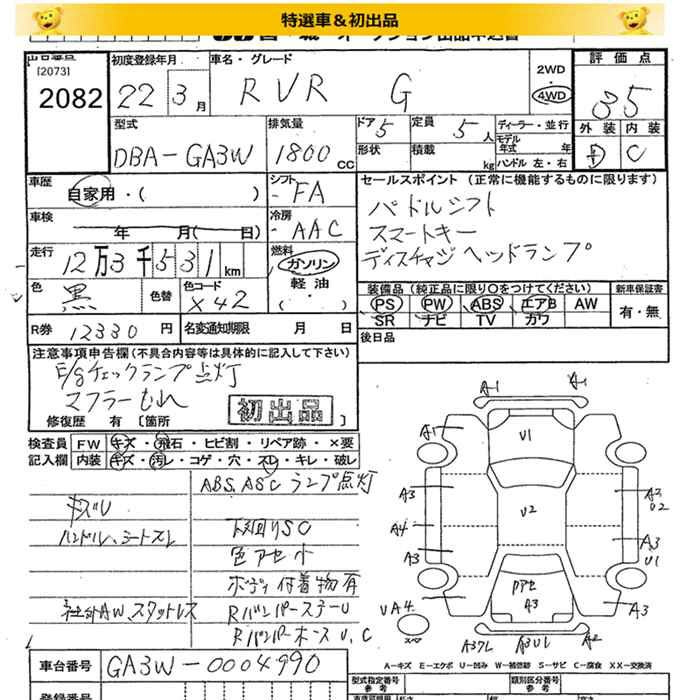 特選車＆初出品
出品番号
[2073]
2082
初度登録年月
22 3月
車名・グレード
RVR G
2WD
4WD
評価点
3.5
外装 内装
D C
型式
DBA-GA3W
排気量
1800 CC
ドア 5
形状
定員 5人
積載 kg
ディーラー・並行
モデル年式 年
ハンドル 左・右
車歴
自家用・( )
シフト
FA
車検
年 月( 日)
冷房
AAC
走行
12万3千531km
燃料
ガソリン
軽油
・( )
色
黒
色替
色コード
X42
R券 12330円
名変通知期限 月 日
セールスポイント (正常に機能するものに限ります)
パドルシフト
スマートキー
ディスチャジヘッドランプ
装備品 (純正品に限り○をつけてください)
PS PW ABS エアB AW
SR ナビ TV カワ
新車保証書
有・無
後日品
注意事項申告欄 (不具合内容等は具体的に記入して下さい)
E/gチェックランプ点灯
マフラーもれ
初出品
修復歴 有 [箇所 ]
検査員 FW キズ・飛石・ヒビ割・リペア跡・×要
記入欄 内装 キズ・汚レ・コゲ・穴・スレ・キレ・破レ
ABS、ASCランプ点灯
キズU
ハンドル、シートスレ
下廻りSC
色アセ 小
ボディ付着物有
社外AW、スタットレス
RバンパーステーU
RバンパーホースU、C
A-1 A-1
A1 U1
A3 A3 U2
A4 U2
A3 A3 U1
UA4 PアセA3 A3
スペア
A3クレ A3U1 A2
A-キズ E-エクボ U-凹み W-補修跡 S-サビ C-腐食 XX-交換済
車台番号 GA3W-0004990
型式指定番号
参考
類別区分番号
参考
登録番号